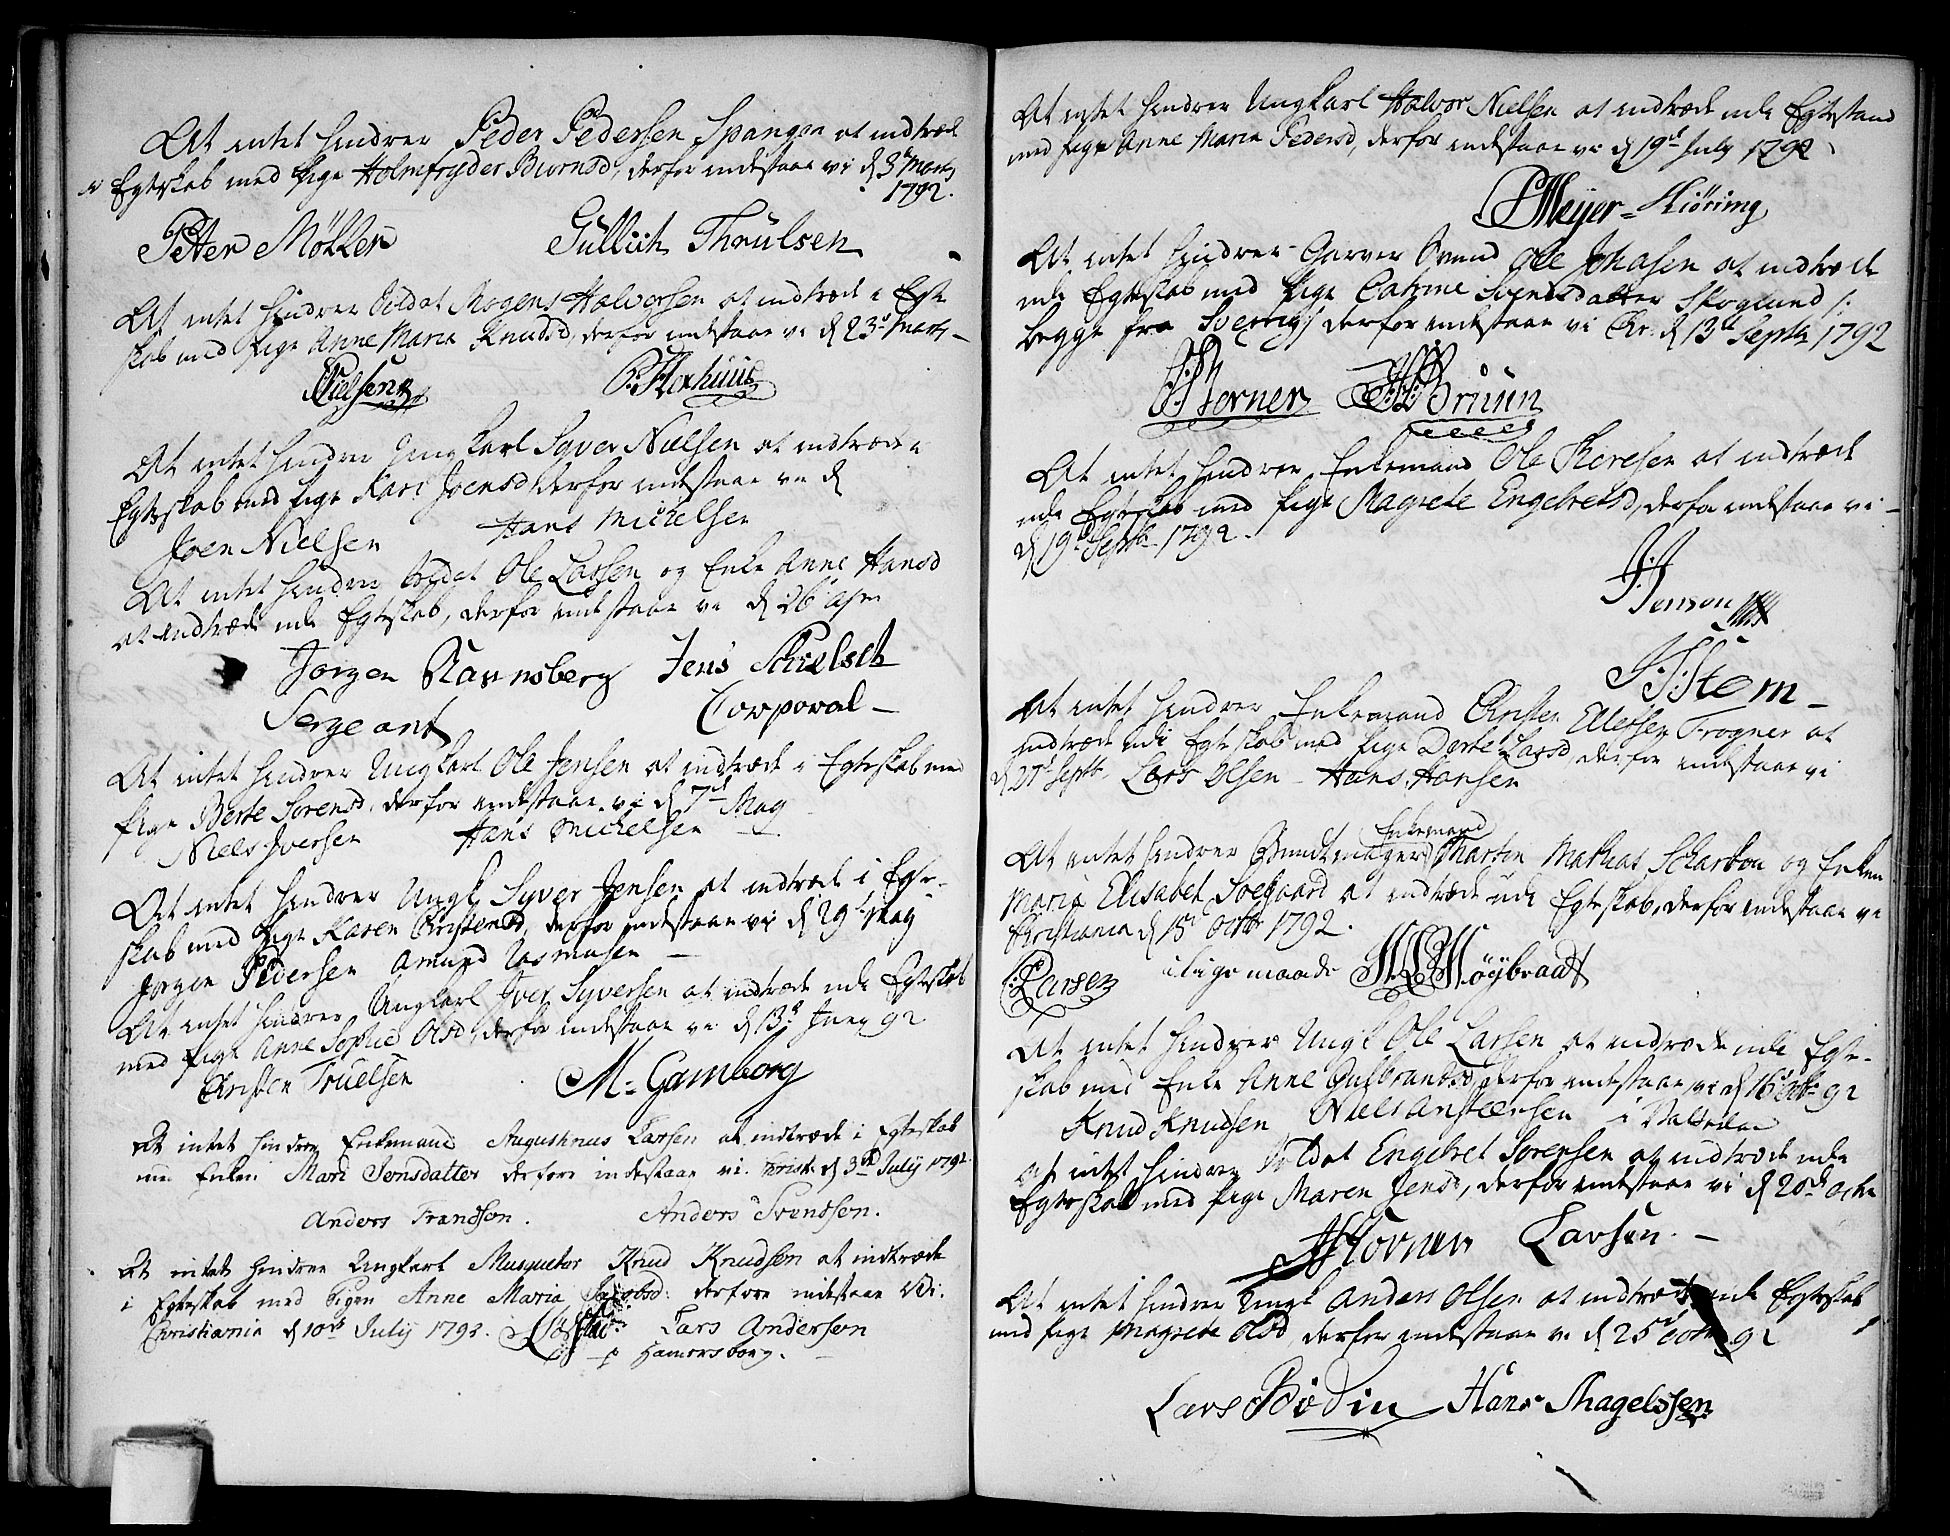 At intet hindrer Peder Pedersen Spangen at indtræde
i Egteskab med Pige Holmfryder Biørnsd, derfor indestaae vi d 3d Marty
1792.
Peter Møller Gullich Thrulsen
At intet hindrer Soldat Mogens Halvorsen at indtræde i Egte
skab med Pige Anne Maria Knudsd, derfor indestaae vi d 23d Marty
Nielsen
At intet hindrer Ungkarl Syver Nielsen at indtræde i
Egteskab med Pige Kari Joensd derfor indestaae vi d
Joen Nielsen Hans Michelsen
At intet hindrer Soldat Ole Larsen og Enke Anne Hansd
at indtræde udi Egteskab, derfor indestaae vi d 26 Apr
Jørgen Ravnsberg Jens
Sergeant Corporal
At intet hindrer Ungkarl Ole Jensen at indtræde i Egteskab med
Pige Berte Sørensd, derfor indestaae vi d 7d May
Niels Iversen Hans Michelsen
At intet hindrer Ungk Syver Jensen at indtræde i Egte
skab med Pige Karen Christensd, derfor indestaae vi d 29d May
Jørgen Pedersen Amund Rasmusen
At intet hindrer Ungkarl Iver Syversen at indtræde udi Egteskab
med Pige Anne Sophie Olsd, derfor indestaae vi d 13d Juny 92
Christen Truelsen M. Gamborg
At intet hindrer Enkemand Augustinus Larsen at indtræde i Egteskab
med Enken Mari Jensdatter derfore indestaae vi. Christ: d 3die July 1792.
Anders Trandsøn. Anders Svendsøn.
At intet hindrer Ungkarl Musqueter Knud Knudsøn at indtræde
i Egteskab med Pigen Anne Maria Jacobsd: derfore indestaae Vi.
Christiania d 10de July 1792. Lars Andersøn
p Hamersborg.
At intet hindrer Ungkarl Halvor Nielsen at indtræde udi Egtestand
med Pige Anne Maria Pedersd, derfor indestaae vi d 19d July 1792
P Meyer Kiøring
At intet hindrer Garver Svend Ole Johasen at indtræde
udi Egteskab med Pige Catrine Svendsdatter Skoglund /:
begge fra Sverrig/ derfor indestaae vi Chr. d 13d Septbr 1792
Horner Bruun
At intet hindrer Enkemand Ole Thoresen at indtræde
udi Egteskab med Pige Magrete Engebretsd, derfor indestaae vi
d 19d Septbr 1792.
J: J:
Jenson
Stem
At intet hindrer Enkemand Christen Ellefsen Frogner at
indtræde udi Egteskab med Pige Dorte Larsd, derfor indestaae vi
d 27d Septbr Lars Olsen Hans Hansen
Enkemand
At intet hindrer Bundtmager Martin Mathias Scharbou og Enken
Maria Elisabet Soelgaard at indtræde udi Egteskab, derfor indestaae vi
Christiania d 15d Octbr 1792.
Larsen iligemaade Høybraadt
At intet hindrer Ungk Ole Larsen at indtræde udi Egte-
skab med Enke Anne Gulbrandsd, derfor indestaae vi d 16d Octbr 92
Knud Knudsen Niels Anstensen i
At intet hindrer Soldat Engebret Sørensen at indtræde udi
Egteskab med Pige Maren Jensd, derfor indestaae vi d 20d Octbr
Horner Larsen
At intet hindrer Ungk Anders Olsen at indtræde udi Egteskab
med Pige Magrete Olsd, derfor indestaae vi d 25d Octbr 92
Lars Bodin Hans Thagelssen